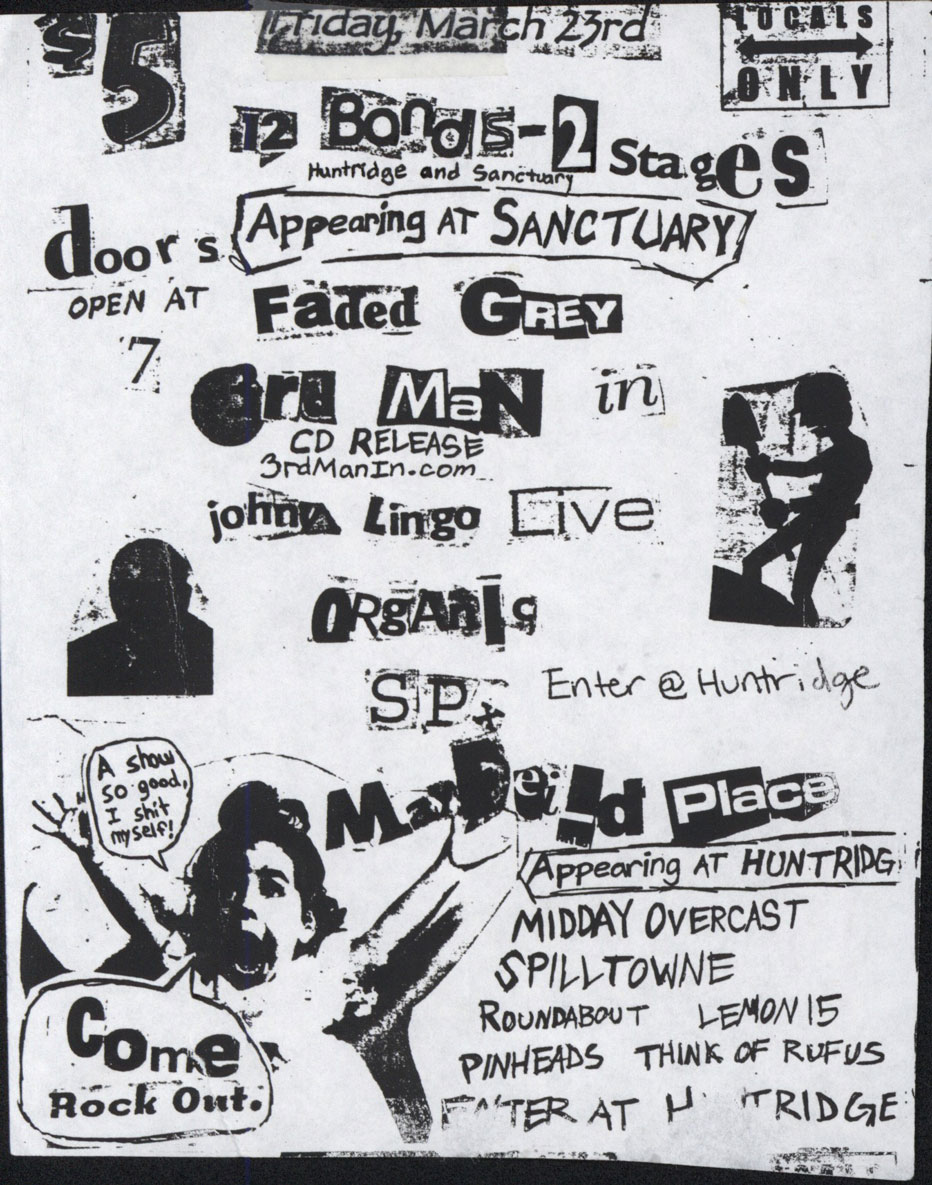 $5
Friday, March 23rd
LOCALS
ONLY
12 Bands-2 Stages
Huntridge and Sanctuary
doors
OPEN AT
7
Appearing AT SANCTUARY
Faded GREY
3rd MaN in
CD RELEASE
3rdManIn.com
johny Lingo Live
ORgAnic
SP
Enter @ Huntridge
A show
so good,
I shit
myself!
Place
Appearing AT HUNTRIDG
MIDDAY OVERCAST
SPILLTOWNE
ROUNDABOUT LEMON 15
PINHEADS THINK OF RUFUS
ENTER AT HUNTRIDGE
Come
Rock Out.